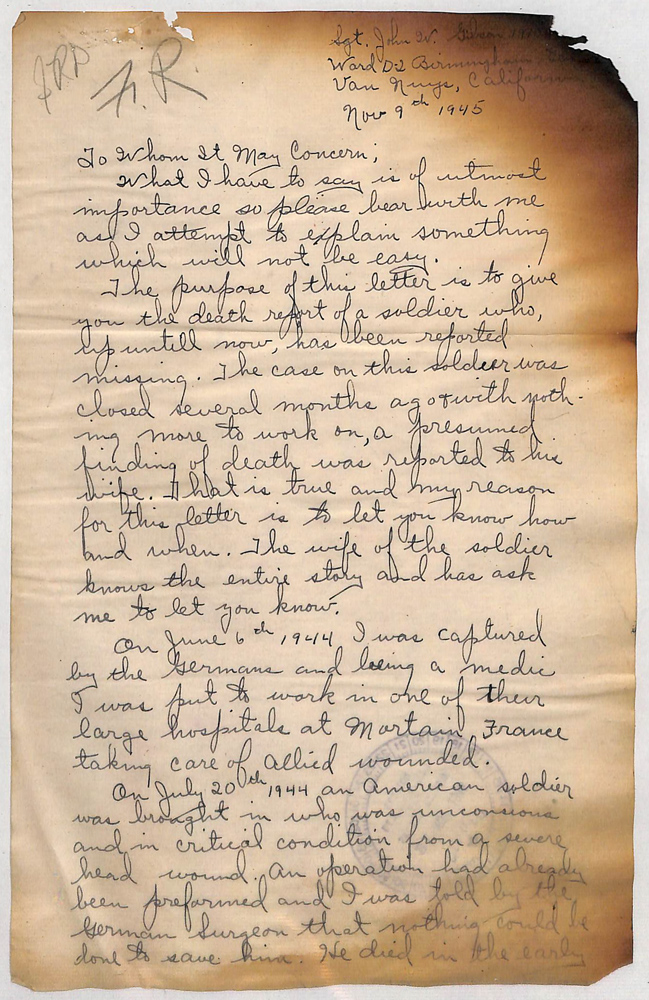 JRP
F.R.
Sgt. John W. Gibson
Ward D-2 Birmingham
Van Nuys, California
Nov 9th 1945
To Whom It May Concern;
What I have to say is of utmost
importance so please bear with me
as I attempt to explain something
which will not be easy.
The purpose of this letter is to give
you the death report of a soldier who,
up untill now, has been reported
missing. The case on this soldier was
closed several months ago with noth-
ing more to work on, a presumed
finding of death was reported to his
wife. That is true and my reason
for this letter is to let you know how
and when. The wife of the soldier
knows the entire story and has ask
me to let you know.
On June 6th, 1944 I was captured
by the Germans and being a medic
I was put to work in one of their
large hospitals at Mortain, France
taking care of allied wounded.
On July 20th, 1944 an American soldier
was brought in who was unconsious
and in critical condition from a severe
head wound. An operation had already
been preformed and I was told by the
German Surgeon that nothing could be
done to save him. He died in the early